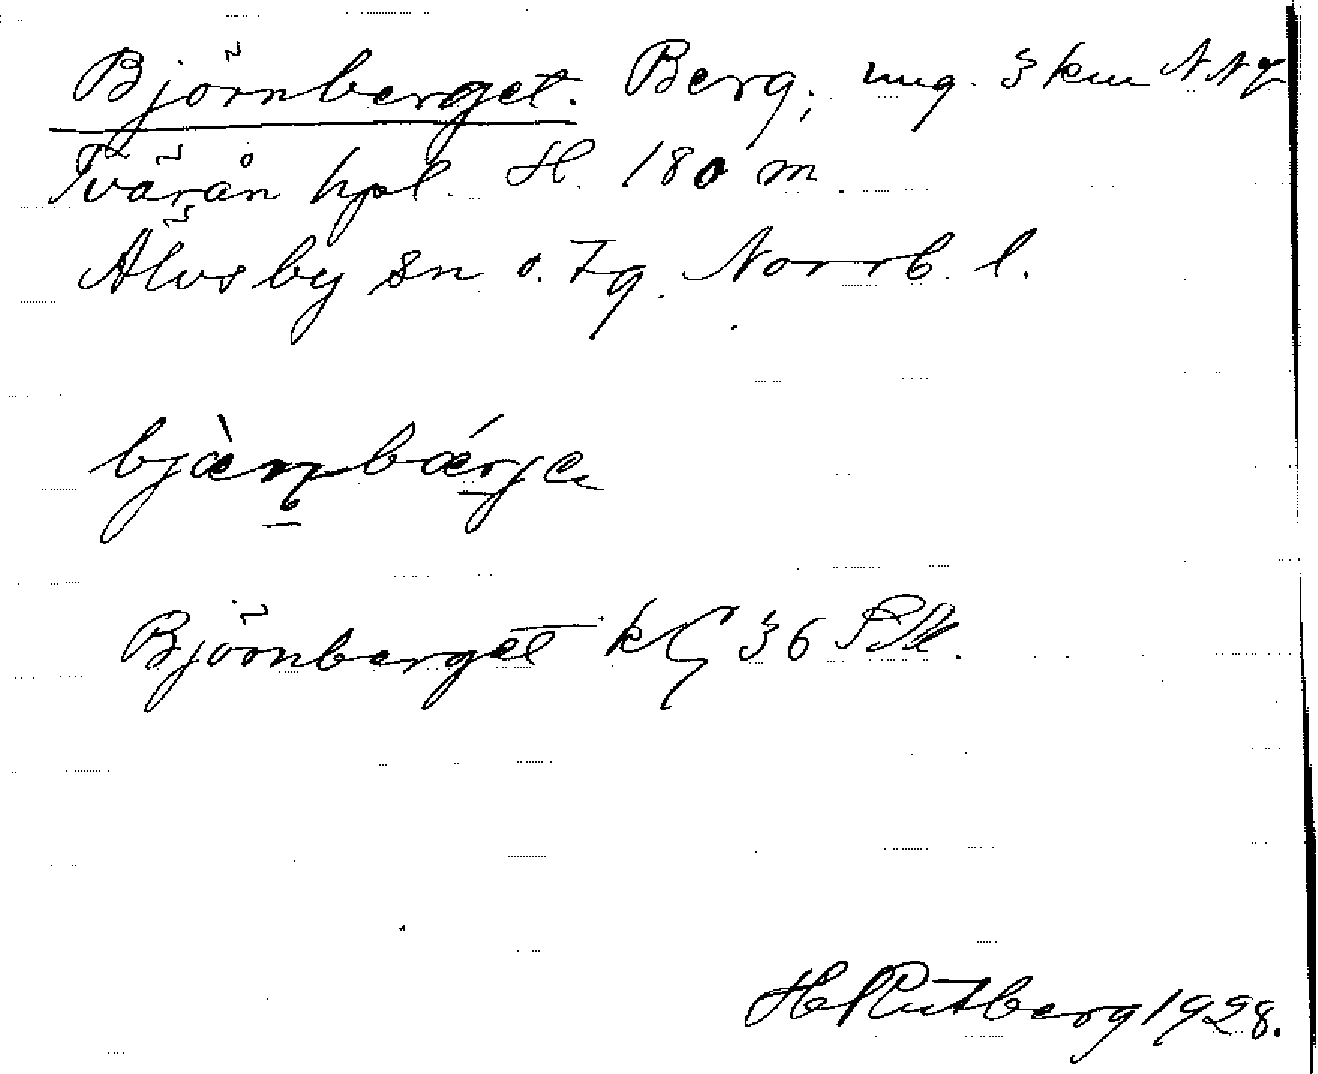 Björnberget. Berg, ung. 3 km NNV
Tvärån hpl. H. 180 m.
Älvsby sn o. Tg. Norrb. l.
bjæ̀ṇbǽrje
Björnberget k 36
H Rutberg 1928.